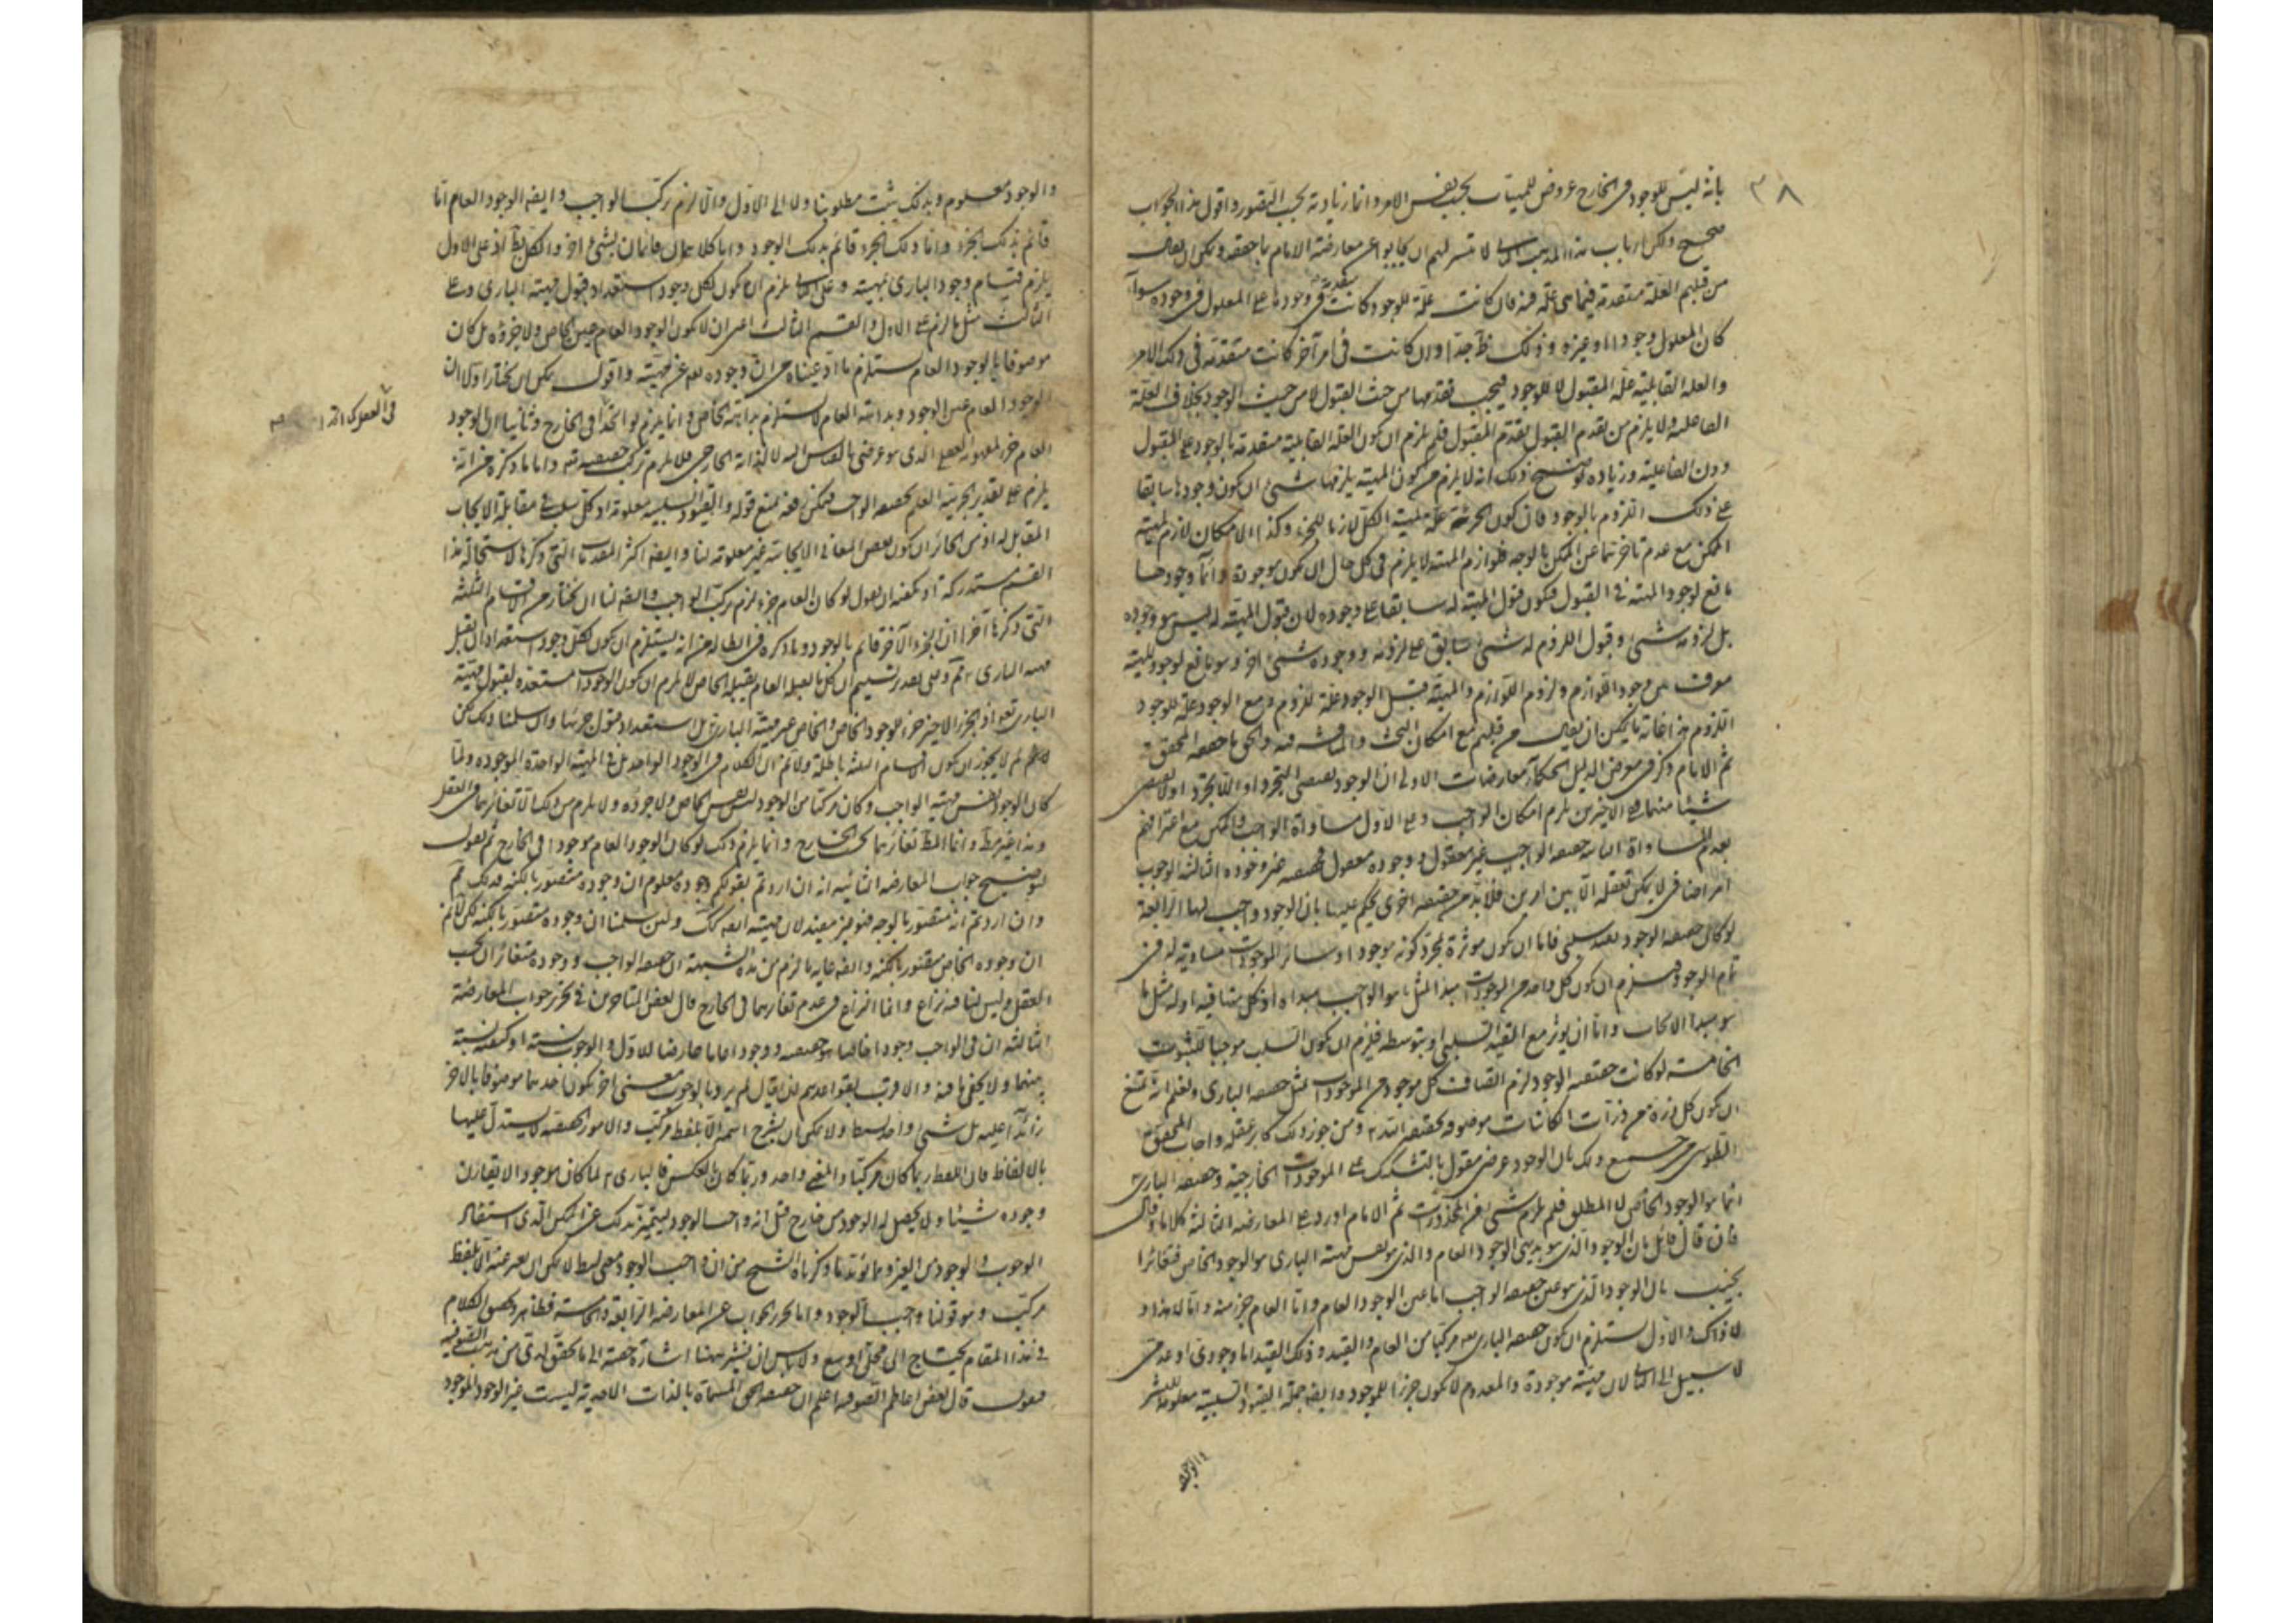 ٣٨
بانه ليس للوجود فى الخارج عروض للمهيات بحسب نفس الامر وانما زيادته بحسب التصور واقول هذا الجواب
صحيح ولكن ارباب هذا المذهب لا تيسر لهم ان يجابوا عن معارضة الامام بما حققه ويمكن ان يقال
من قبلهم العلة متقدمة فيما هى علة فيه فان كانت علة للوجود كانت متقدمة فى وجودها على المعلول فى وجوده سواء
كان المعلول وجودا او غيره وذلك ظ جدا وان كانت فى امر آخر كانت متقدمة فى ذلك الامر
والعلة القابلية علة المقبول لا للوجود فيجب تقدمها من حيث القبول لا من حيث الوجود بخلاف العلة
الفاعلية ولا يلزم من تقدم القبول تقدم المقبول فلم يلزم ان يكون العلة القابلية متقدمة بالوجود على المقبول
دون الفاعلية وزيادة توضيح ذلك انه لا يلزم من كون المهية يلزمها شئ ان يكون وجودها سابقا
على ذلك اللزوم بالوجود فان كون الجزء علة لمهية الكل لازما للجزء وكذا الامكان لازم لمهية
الممكن مع عدم تاخرهما عن الممكن بالوجه فلوازم المهية لا يلزم فى كل حال ان يكون موجودة وانما وجودها
تابع لوجود المهية فى القبول فيكون قبول المهية له سابقا على وجوده لان قبول المهية له ليس هو وجوده
بل لزومه شئ وقبول اللزوم له شئ سابق على لزومه ووجوده شئ آخر وهو تابع لوجود المهية
موقوف على وجود اللوازم ولزوم اللوازم والمهية قبل الوجود علة للزوم ومع الوجود علة للوجود
اللزوم هذا غاية ما يمكن ان يقال من قبلهم مع امكان البحث والمناقشة فيه والحق ما حققه المحقق
ثم الامام ذكر فى معرض الدليل للحكماء معارضات الاولى ان الوجود يقتضى التجرد او اللاتجرد او لا يقتضى
شيئا منهما فعلى الاخيرين يلزم امكان الواجب وعلى الاول مساواة الواجب والممكن مع اعترافهم
بعدم المساواة الثانية حقيقة الواجب غير معقول ووجوده معقول فحقيقته غير وجوده الثالثة الوجوب
امر اضافى لا يمكن تعقله الا بين امرين فلا بد من حقيقة اخرى يحكم عليها بان الوجود واجب لها الرابعة
لو كان حقيقته الوجود بقيد سلبى فاما ان يكون مؤثرة بمجرد كونه موجودا وسائر الموجودات مساوية له فى
تمام الوجود فيلزم ان يكون كل واحد من الموجودات مبدأ لمثل ما هو الواجب مبداه او كل مشاقيه او له مثل ما
هو مبدا الايجاب واما ان يؤثر مع القيد السلبى او بتوسطه فيلزم ان يكون السلب موجبا للثبوت
الخامسة لو كانت حقيقته الوجود لزم اتصاف كل موجود من الموجودات بمثل حقيقة البارى ونعلم انه يمتنع
ان يكون كل ذرة من ذرات الكائنات موصوفة بحقيقة الله ومن جوز ذلك كابر عقله واجاب المحقق
الطوسى عن جميع ذلك بان الوجود عرضى مقول بالتشكيك على الموجودات الخارجية وحقيقة البارى
انما هو الوجود الخاص لا المطلق فلم يلزم شئ من المحذورات ثم الامام اورد على المعارضة الثالثة كلاما وقال
فان قال قائل بان الوجود الذى هو بديهى الوجود العام والذى هو نفس مهية البارى هو الوجود الخاص فتغايرا
يجيب بان الوجود الذى هو عين حقيقة الواجب اما عين الوجود العام واما العام جزء منه واما لا هذا و
لا ذاك والاول يستلزم ان يكون حقيقة البارى مركبا من العام والقيد وذلك القيد اما وجودى او عدمى
لا سبيل الى الثانى لان مهيته موجودة والمعدوم لا يكون جزءا للموجود وايضا جملة القيود السلبية معلومة للبشر
والوجود
والوجود معلوم وبذلك يثبت مطلوبنا ولا الى الاول والا لزم تركب الواجب وايضا الوجود العام اما
قائم بذلك الجزء واما ذلك الجزء قائم بذلك الوجود واما كلاهما قائمان بشئ آخر والكل بط اذ على الاول
يلزم قيام وجود البارى بمهيته وعلى الثانى يلزم ان يكون لكل وجود استعداد قبول مهية البارى وعلى
الثالث مثل ما لزم على الاول والقسم الثالث اعنى ان لا يكون الوجود العام عين الخاص ولا جزؤه بل كان
موصوفا بالوجود العام يستلزم ما ادعيناه من ان وجوده غير مهيته واقول يمكن ان يختار اولا ان
الوجود العام عين الوجود وبداهة العام لا يستلزم بداهة الخاص وانما يلزم لو اتحدا فى الخارج وثانيا ان الوجود
العام جزء لمفهومه العقلى الذى هو عرضى بالقياس اليه لا لذاته الخارجى فلا يلزم تركب حقيقته واما ما ذكره من انه
يلزم على تقدير الجزئية العلم بحقيقة الواجب فيمكن فيه منع قوله والقيود السلبية معلومة اذ كل سلب فى مقابلة الايجاب
المقابل له اذ من الجائز ان يكون بعض المعانى الايجابية غير معلومة لنا وايضا اكثر المقدمات التى ذكرها لاستحالة هذا
القسم مستدركة اذ يكفيه ان يقول لو كان العام جزء لزم تركب الواجب وايضا لنا ان نختار من الاقسام الثلثة
التى ذكرها آخرا ان الجزء الآخر قائم بالوجود وما ذكره فى ابطاله من انه يستلزم ان يكون لكل وجود استعداد ان يقبل
مهية البارى تم وعلى تقدير تسليم ان كل ما يقبله العام يقبله الخاص لا يلزم ان يكون الوجودات مستعدة لقبول مهية
البارى تعالى اذ الجزء الاخير جزء للوجود الخاص والخاص عين مهية البارى بل استعداد قبول جزئها وان سلمنا ذلك لكن
لا نم لم لا يجوز ان يكون اقسام الثلثة باطلة ولا نم ان الكلام فى الوجود الواحد بل فى المهية الواحدة الموجودة ولما
كان الوجود نفس مهية الواجب وكان مركبا من الوجود ليس نفس الخاص ولا جزؤه ولا يلزم من ذلك الا تغايرهما فى العقل
وهذا غير مط وانما المط تغايرهما بحسب الخارج وانما يلزم ذلك لو كان الوجود العام موجودا فى الخارج ثم نقول
لتوضيح جواب المعارضة الثانية انه ان اردتم بقولكم وجوده معلوم ان وجوده متصور بالكنه فذلك تم
وان اردتم انه متصور بالوجه فهو غير مفيد لان مهيته ايضا كك ولئن سلمنا ان وجوده متصور بالكنه لكن لا نم
ان وجوده الخاص متصور بالكنه وايضا غاية ما يلزم من هذه الشبهة ان حقيقة الواجب ووجوده متغايران بحسب
العقل وليس لنا فيه نزاع وانما النزاع فى عدم تغايرهما فى الخارج قال بعض المتاخرين فى تحرير جواب المعارضة
الثالثة ان فى الواجب وجودا خاصا هو حقيقته ووجودا عاما عارضا للاول والوجوب نسبة او كيفية نسبة
بينهما ولا يخفى ما فيه والاقرب بقواعدهم ان يقال لم يريدوا بالوجوب معنى آخر يكون احدهما موصوفا بالاخر
زائدا عليه بل شئ واحد بسيط ولا يمكن ان يشرح اسمه الا بلفظ مركب والامور الحقيقية لا يستدل عليها
بالالفاظ فان اللفظ ربما كان مركبا والمعنى واحد وربما كان بالعكس فالبارى لما كان موجودا لا يقارن
وجوده شيئا ولا يحصل له الوجود من خارج قيل انه واجب الوجود ليتميز بذلك عن الممكن الذى استفاد
الوجوب والوجود من الغير ومما يؤيد ما ذكرناه الشيخ من ان واجب الوجود معنى بسيط لا يمكن ان يعبر عنه الا بلفظ
مركب وهو قولنا واجب الوجود واما تحرير الجواب عن المعارضة الرابعة والخامسة فظاهر وتحقيق الكلام
فى هذا المقام يحتاج الى مجلى اوسع ولا باس ان نشير ههنا اشارة خفية الى ما تحقق لدى من مذهب الصوفية
فنقول قال بعض اعاظم الصوفية اعلم ان حقيقة الحق المسماة بالذات الاحدية ليست غير الوجود الموجود